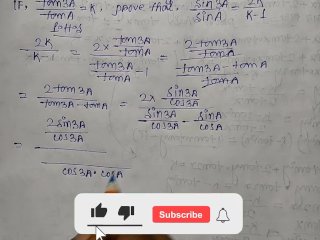 If, tan3A/tanA = K, prove that, sin3A/sinA = 2K/K-1
2K/K-1 = 2× tan3A/tanA / tan3A/tanA - 1 = 2tan3A/tanA / tan3A - tanA/tanA
= 2tan3A / tan3A - tanA = 2× sin3A/cos3A / sin3A/cos3A - sinA/cosA
= 2sin3A/cos3A
cos3A · cosA
Subscribe